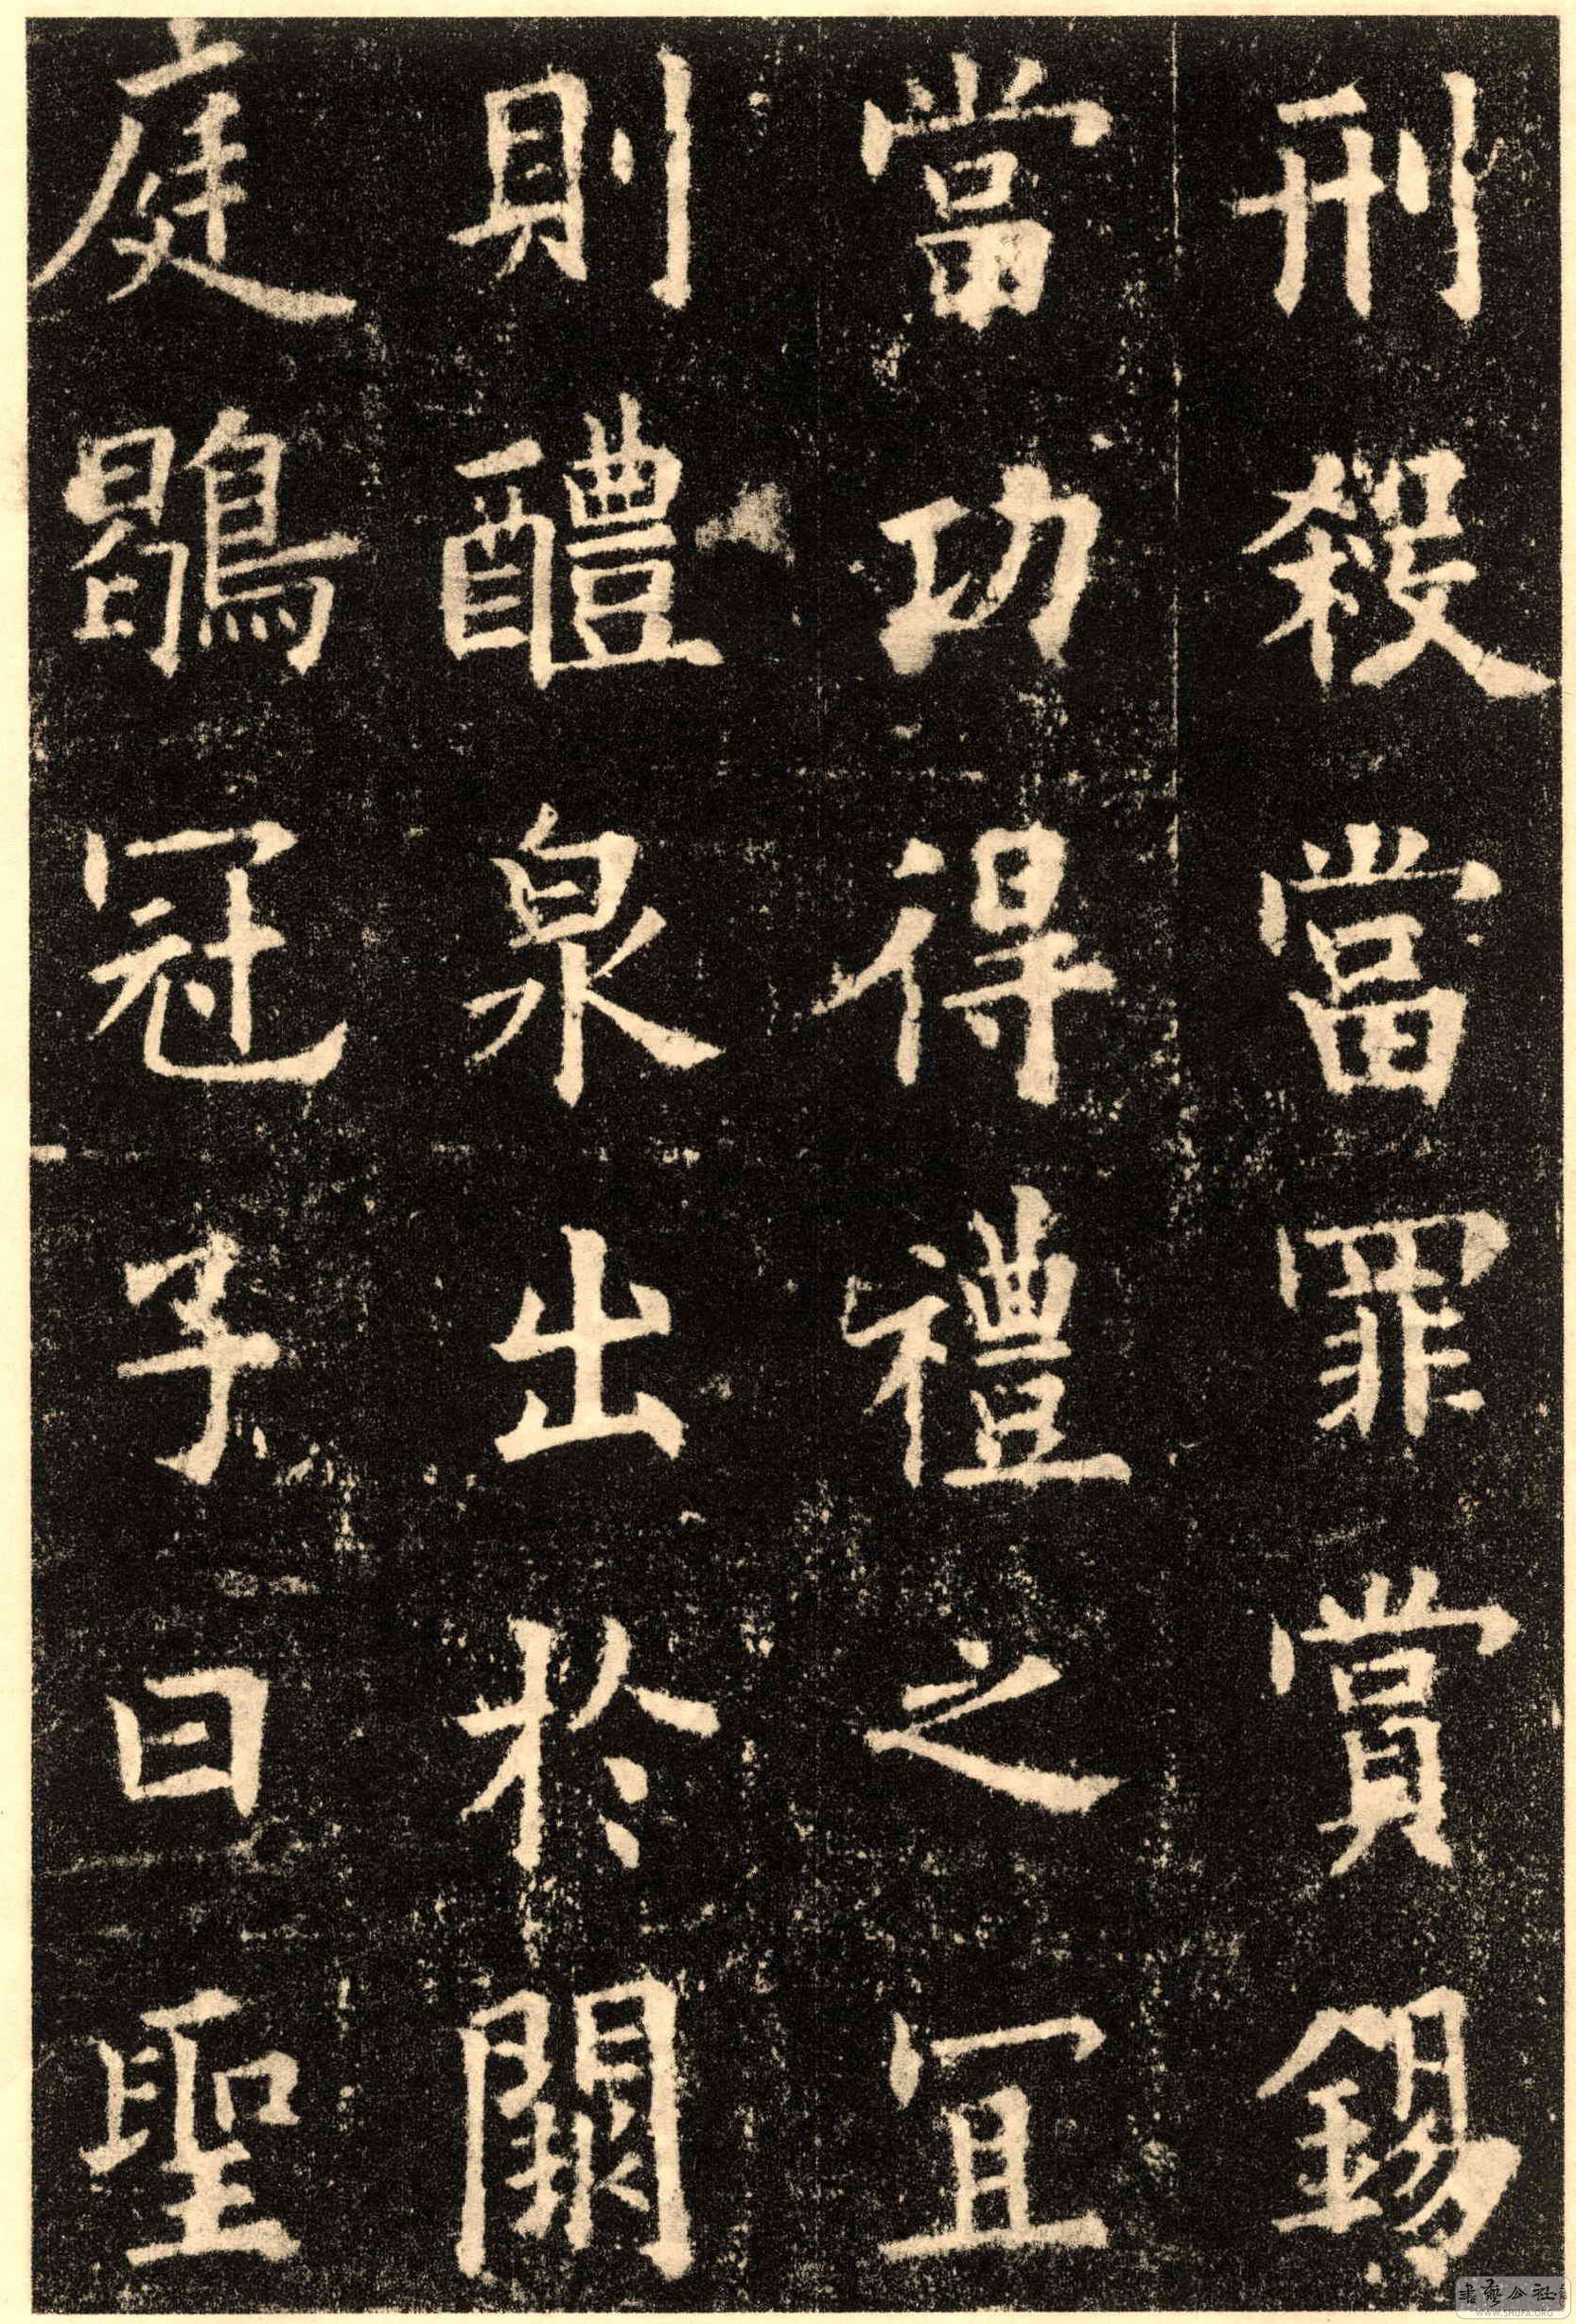 刑殺當罪賞錫
當功得禮之宜
則醴泉出於闕
庭鶡冠子曰聖
書藝公社
WWW.SHUFA.ORG